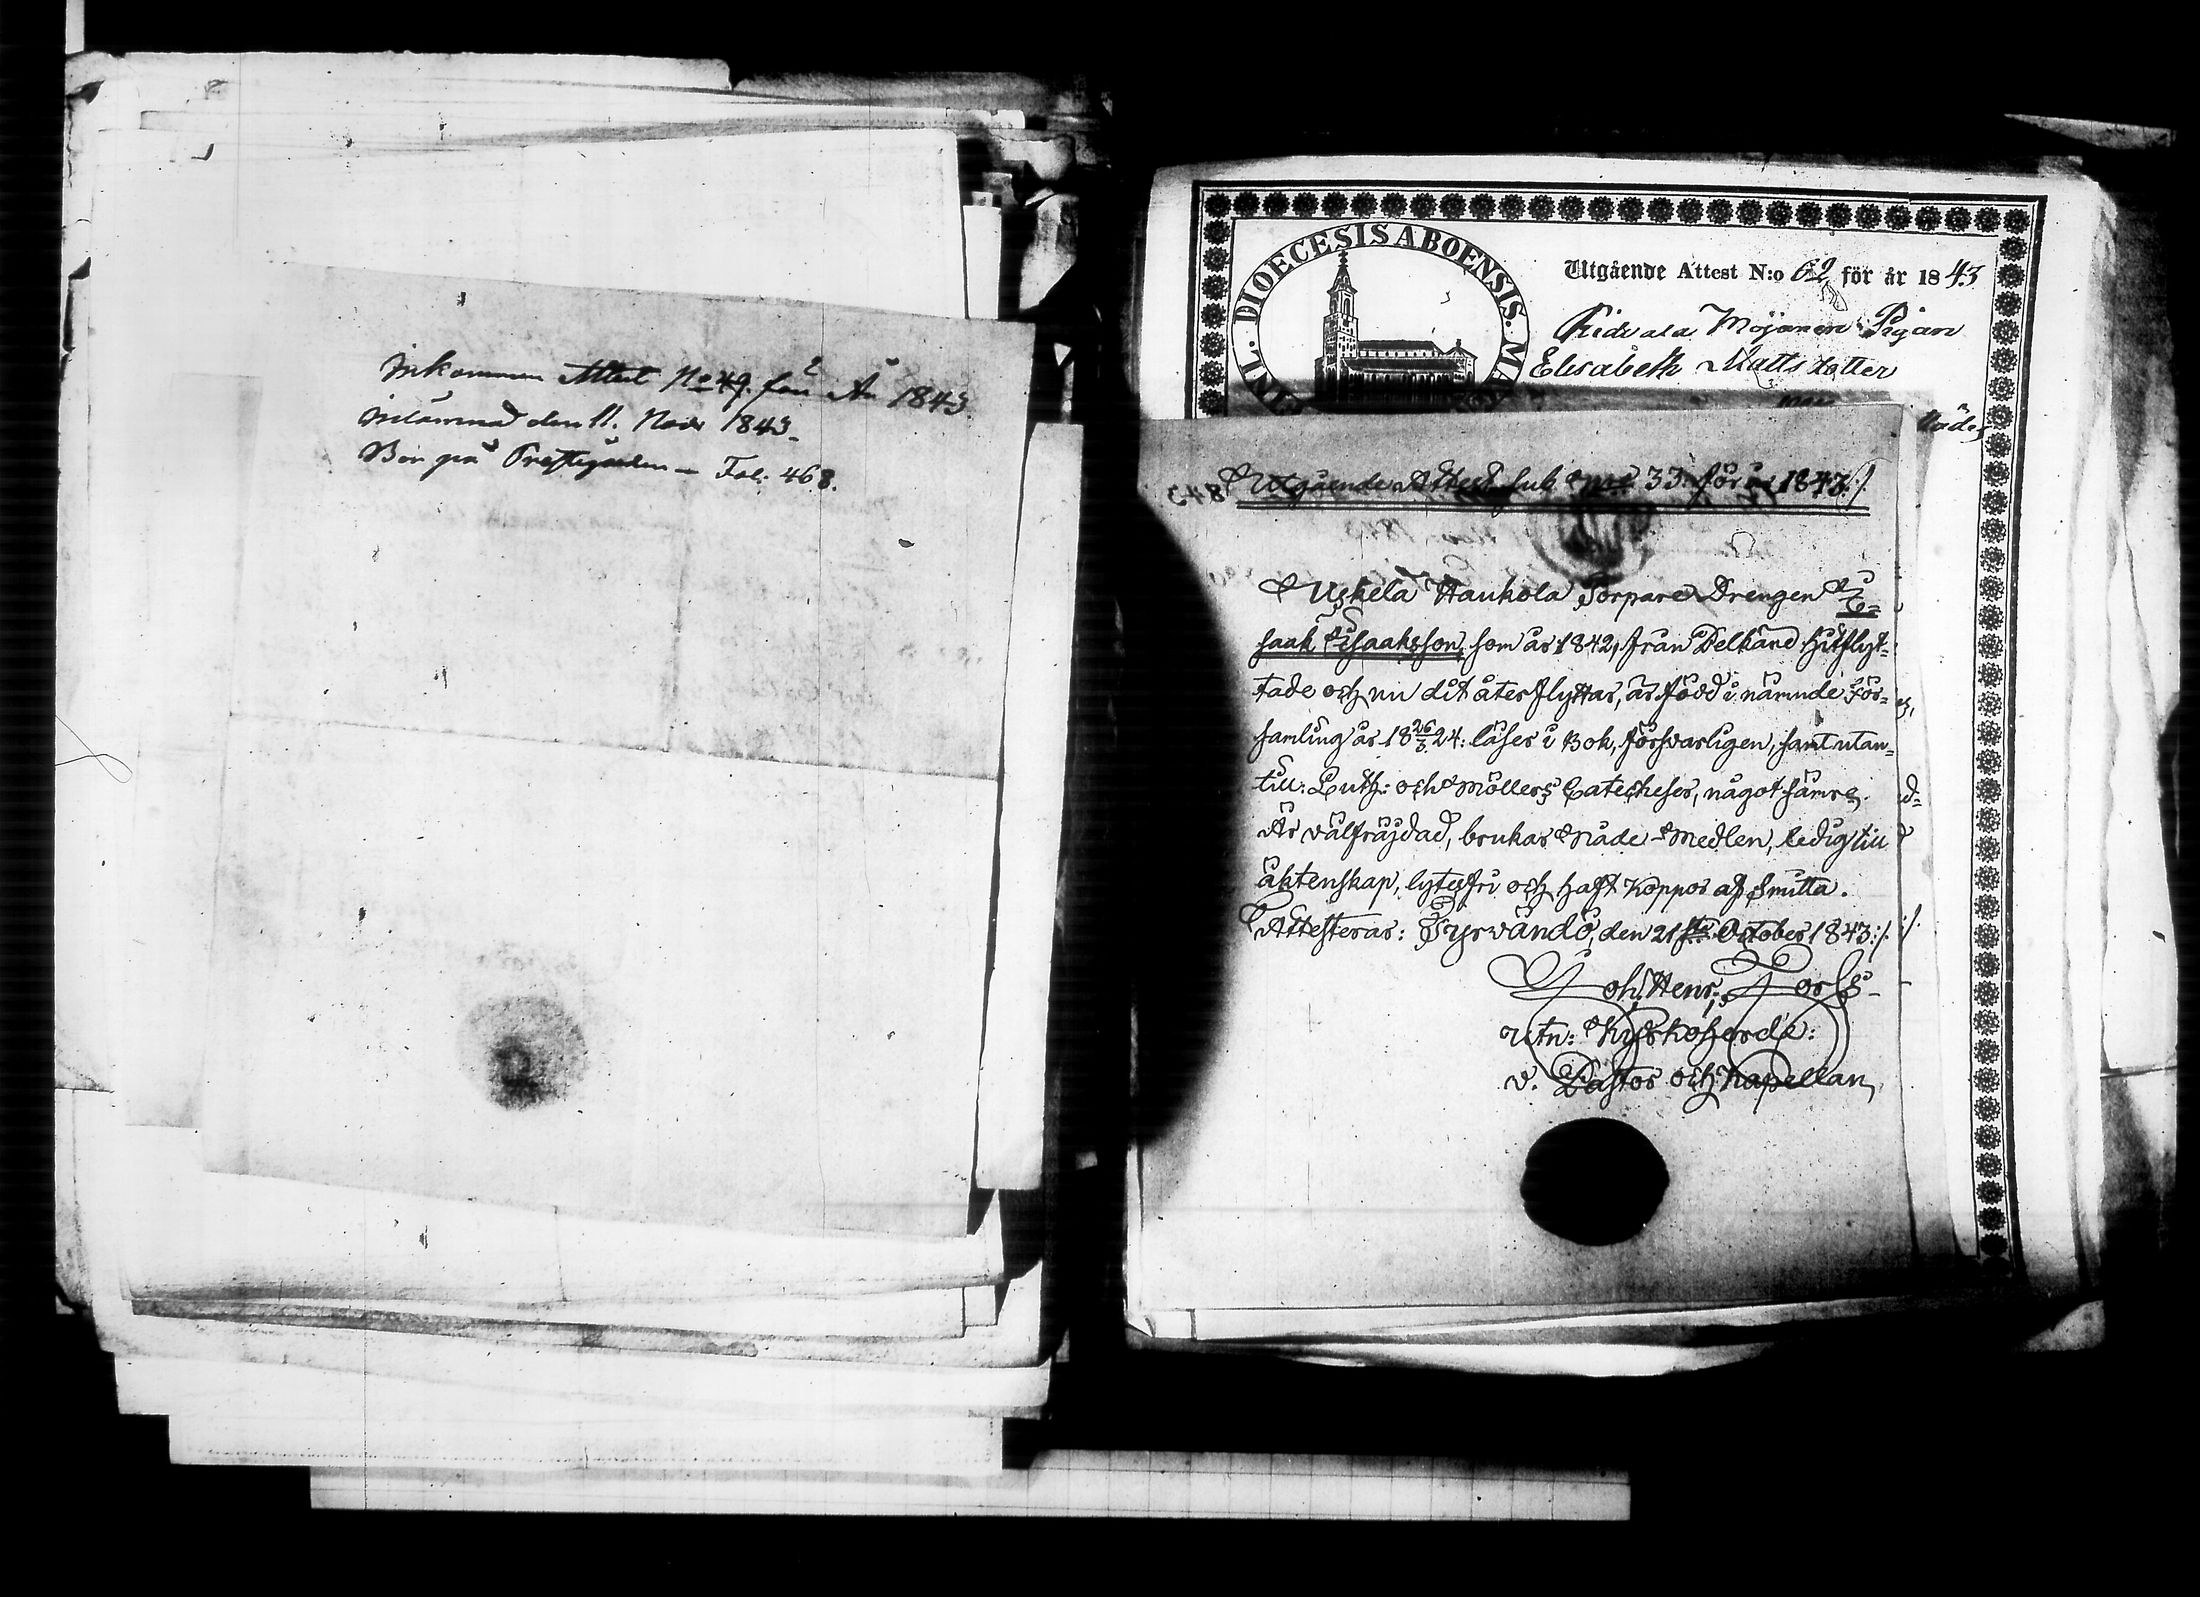 Inkommen Attest No 49. för År 1843.
Inlämnad den 11. Novr 1843.
Bor på Prestgården – Fol: 468.
DIOECESIS ABOENSIS.
Utgående Attest N:o 62 för år 1843
Elisabeth Matts dotter
Utgående Attest sub No 33. för år 1843:/.
Uskela Haukola Torpare Drengen I=
saak Isaaksson, som år 1842, från Pelkäne hitflyt=
tade och nu dit återflyttar, är född i nämnde För=
samling år 18 26/3 24: läser i Bok, försvarligen, samt utan=
till: Luth: och Möllers Catecheser, något sämre.
Är välfräjdad, brukar Nåde-Medlen, ledig till
äktenskap, lytesfri och haft Koppor af smitta.
Attesteras: Tyrvändö, den 21sta October 1843:/.
Joh. Henr: Forss
utn: Kyrkoherde:
v. Pastor och Kapellan,